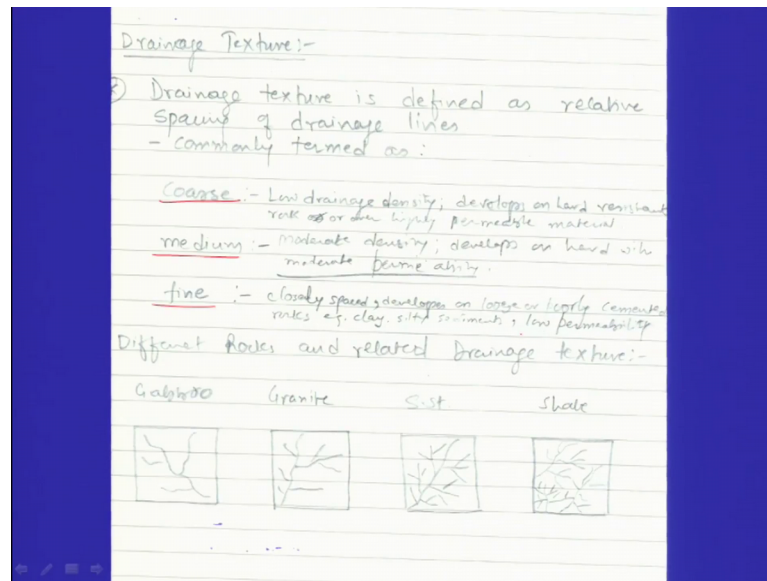 Drainage Texture:-
Drainage texture is defined as relative
spacing of drainage lines
- commonly termed as :
Coarse :- Low drainage density; develops on hard resistant
rock or over highly permeable material
medium :- moderate density; develops on hard with
moderate permeability.
fine :- closely spaced, developes on loose or cemented
rocks eg. clay. silty sediments, low permeability
Different Rocks and related Drainage texture:-
Gabbro Granite Shale